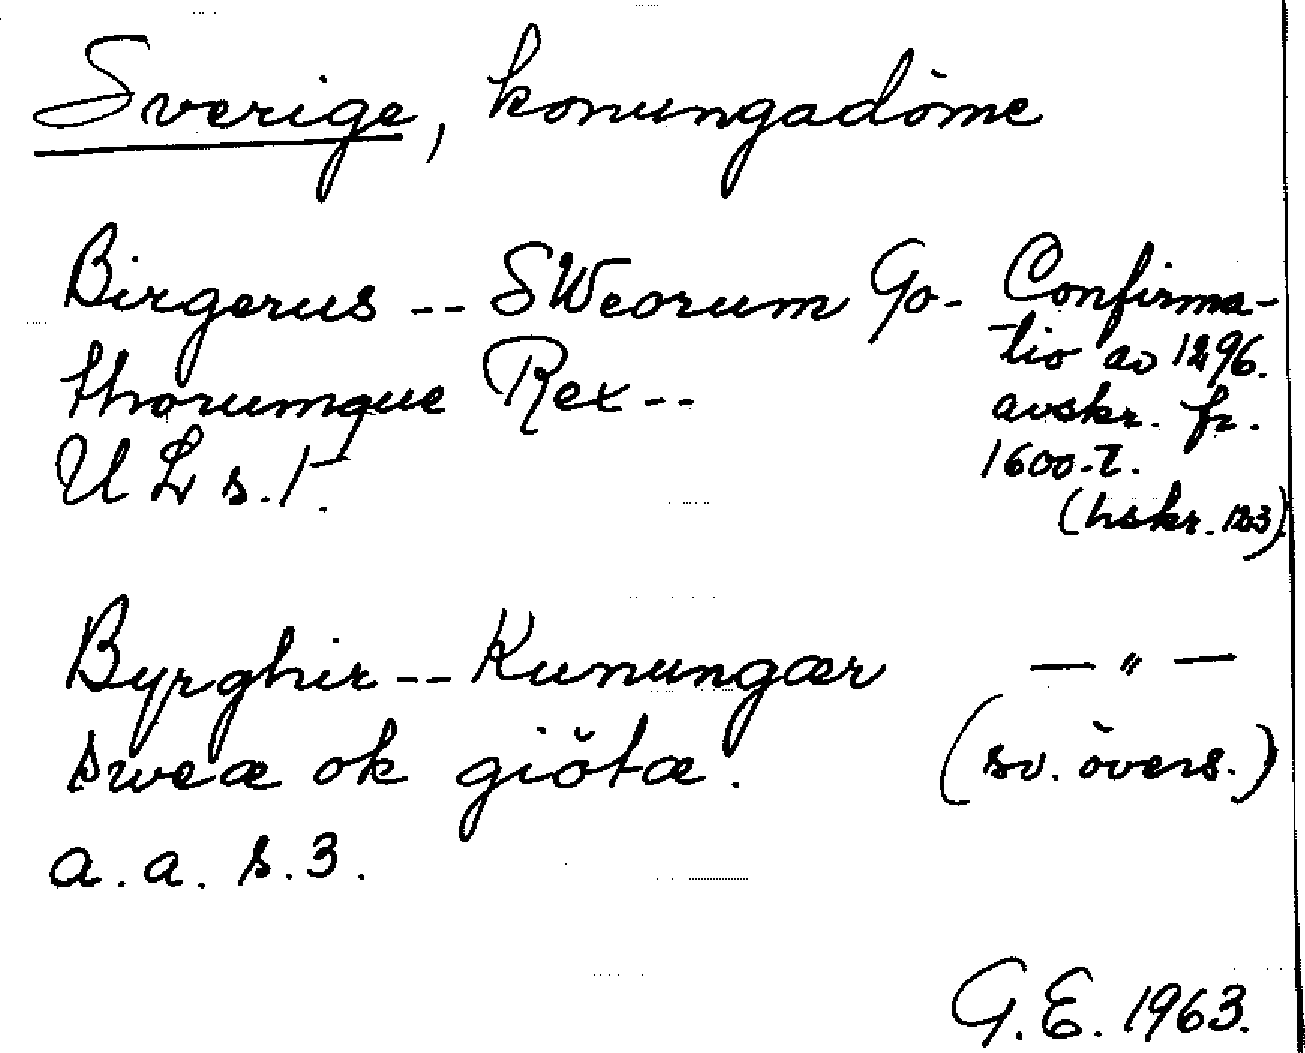 Sverige, konungadöme
Birgerus -- SWeorum Go-
thorumque Rex --
UL s.1.
Confirma-
tio av 1296.
avskr. fr.
1600-t.
(hskr. 123)
Byrghir -- Kunungær
sweæ ok giötæ.
a.a. s.3.
— " —
(sv. övers.)
G.E. 1963.